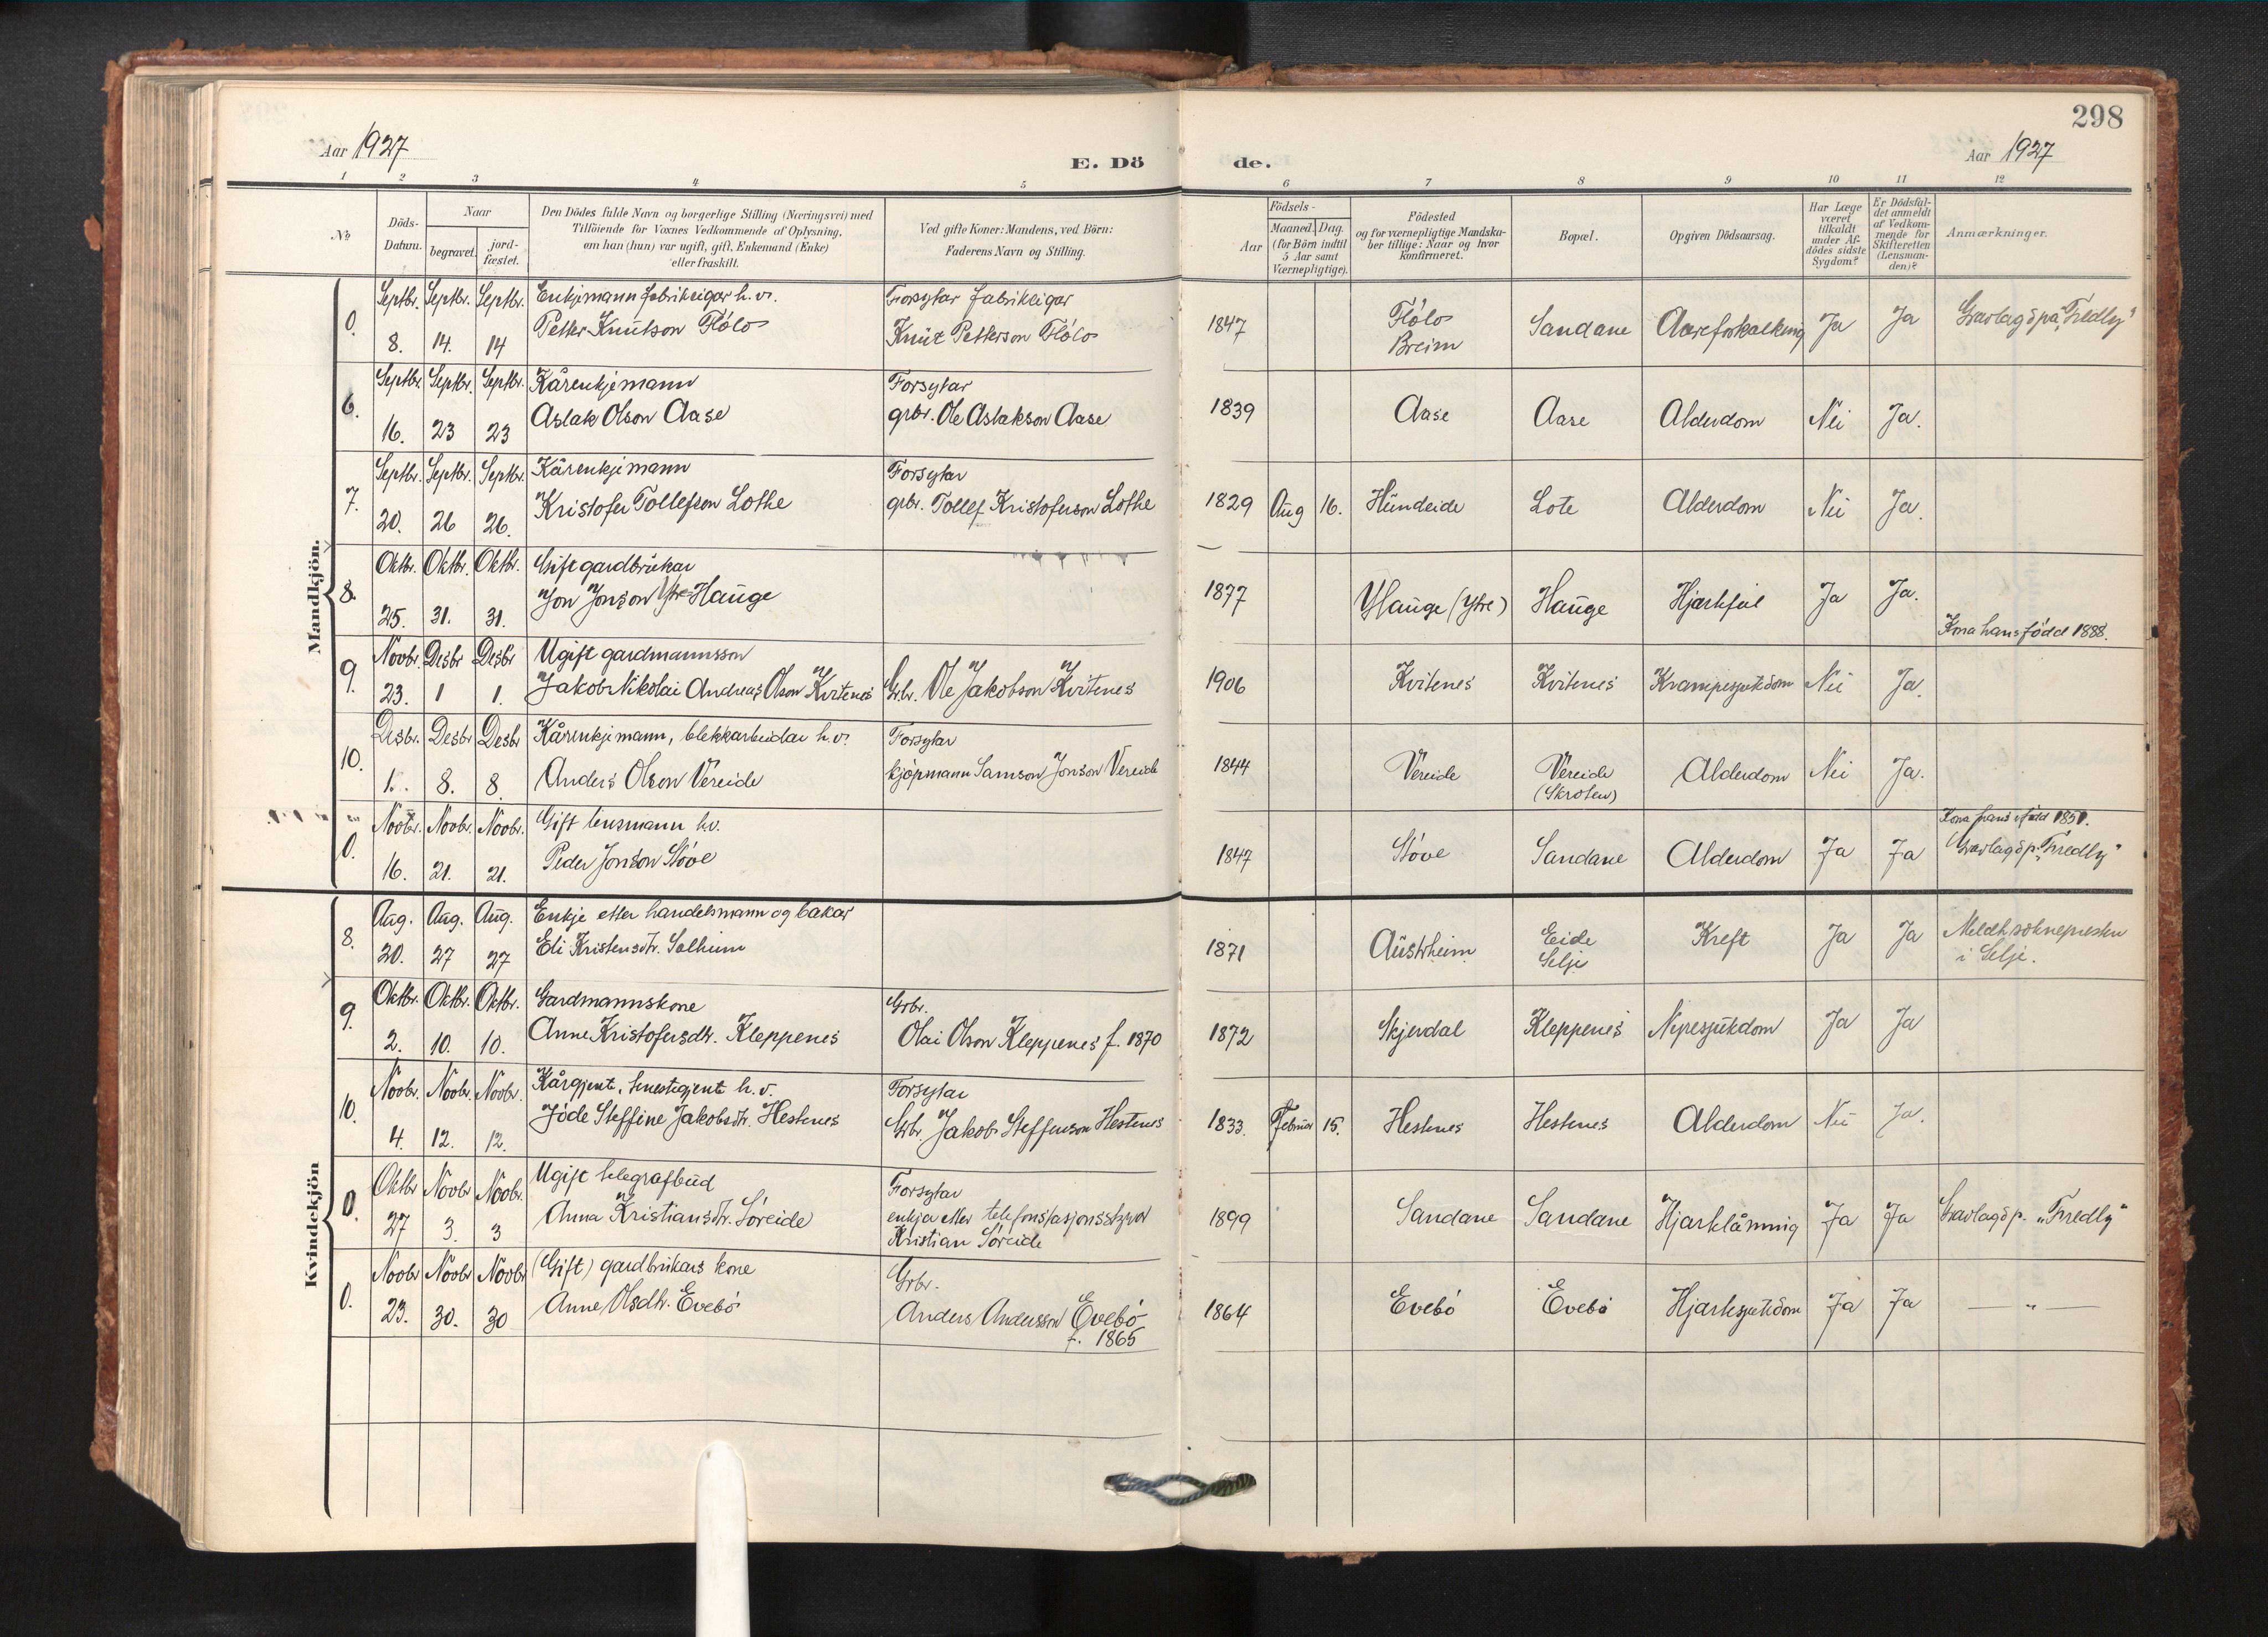 298
Aar 1927
E. Dö
de.
Aar 1927
1 2 3 4 5 6 7 8 9 10 11 12
№
Döds-Datum.
Naar
begravet.
jordfæstet.
Den Dödes fulde Navn og borgerlige Stilling (Næringsvei) med
Tilföiende for Voxnes Vedkommende af Oplysning,
om han (hun) var ugift, gift, Enkemand (Enke)
eller fraskilt.
Ved gifte Koner: Mandens, ved Börn:
Faderens Navn og Stilling.
Födsels-
Aar
Maaned. Dag.
(for Börn indtil
5 Aar samt
Værnepligtige).
Födested
og for værnepligtige Mandska-
ber tillige: Naar og hvor
konfirmeret.
Bopæl.
Opgiven Dödsaarsag.
Har Læge
været
tilkaldt
under Af-
dödes sidste
Sygdom?
Er Dödsfal-
det anmeldt
af Vedkom-
mende for
Skifteretten
(Lensman-
den)?
Anmærkninger.
Mandkjön.
0. Septbr. 8. Septbr. 14. Septbr. 14
Enkjemann fabrikeigar h.v.
Petter Knutson Flólo
Forsytar fabrikeigar
Knut Petterson Flólo
1847 Flólo Breim Sandane Aareforkalking Ja Ja Gravlagd på "Fredly"
6. Septbr. 16. Septbr. 23 Septbr. 23
Kårenkjemann
Aslak Olson Aase
Forsytar
grbr. Ole Aslakson Aase
1839 Aase Aase Alderdom Nei Ja.
7. Septbr. 20. Septbr. 26 Septbr. 26.
Kårenkjemann
Kristofer Tollefson Lothe
Forsytar
grbr. Tollef Kristoferson Lothe
1829 Aug 16. Hundeide Lote Alderdom Nei Ja.
8. Oktbr. 25. Oktbr. 31. Oktbr. 31.
Gift gardbrukar
Jon Jonson Ytre Hauge
1877 Hauge (Ytre) Hauge Hjartefeil Ja Ja.
Kona hans född 1888.
9. Novbr. 23. Desbr 1 Desbr 1.
Ugift gardmannsson
Jakob Nikolai Andreas Olson Kvitenes
Grbr. Ole Jakobson Kvitenes
1906 Kvitenes Kvitenes Krampesjukdom Nei Ja.
10. Desbr. 1. Desbr 8. Desbr 8.
Kårenkjemann, blekkarbeidar h.v.
Anders Olson Vereide
Forsytar
kjöpmann Samson Jonson Vereide
1844 Vereide Vereide (Skroten) Alderdom Nei Ja.
0. Novbr. 16. Novbr. 21. Novbr. 21.
Gift lensmann h.v.
Peder Jonson Stóve
1847 Stóve Sandane Alderdom Ja Ja
Kona hans född 1851.
Gravlagd p. "Fredly"
Kvindekjön
8. Aug. 20. Aug. 27 Aug. 27
Enkje etter handelsmann og bakar
Eli Kristensdtr. Solheim
1871 Austrheim Eide Selje Kreft Ja Ja
Meldt soknepresten
i Selje.
9. Oktbr. 2. Oktbr. 10. Oktbr. 10.
Gardmannskone
Anne Kristofersdtr. Kleppenes
Grbr.
Olai Olson Kleppenes f. 1870
1872 Skjerdal Kleppenes Nyresjukdom Ja Ja
10. Novbr. 4. Novbr. 12. Novbr. 12.
Kårgjent, tenestegjent h.v.
Jóde Steffine Jakobsdtr. Hestenes
Forsytar
Grbr. Jakob Steffenson Hestenes
1833. Februar 15. Hestenes Hestenes Alderdom Nei Ja.
0. Oktbr 27 Novbr 3. Novbr. 3
Ugift telegrafbud
Anna Kristiansdtr. Sóreide
Forsytar
enkja etter telefonstasjonsstyrer
Kristian Sóreide
1899 Sandane Sandane Hjartelåmning Ja Ja Gravlagd p. "Fredly"
0. Novbr 23. Novbr 30. Novbr 30
(Gift) gardbrukars kone
Anne Olsdtr. Evebó
Grbr.
Anders Andersson Evebó
f. 1865
1864 Evebó Evebó Hjartesjukdom Ja Ja — " —